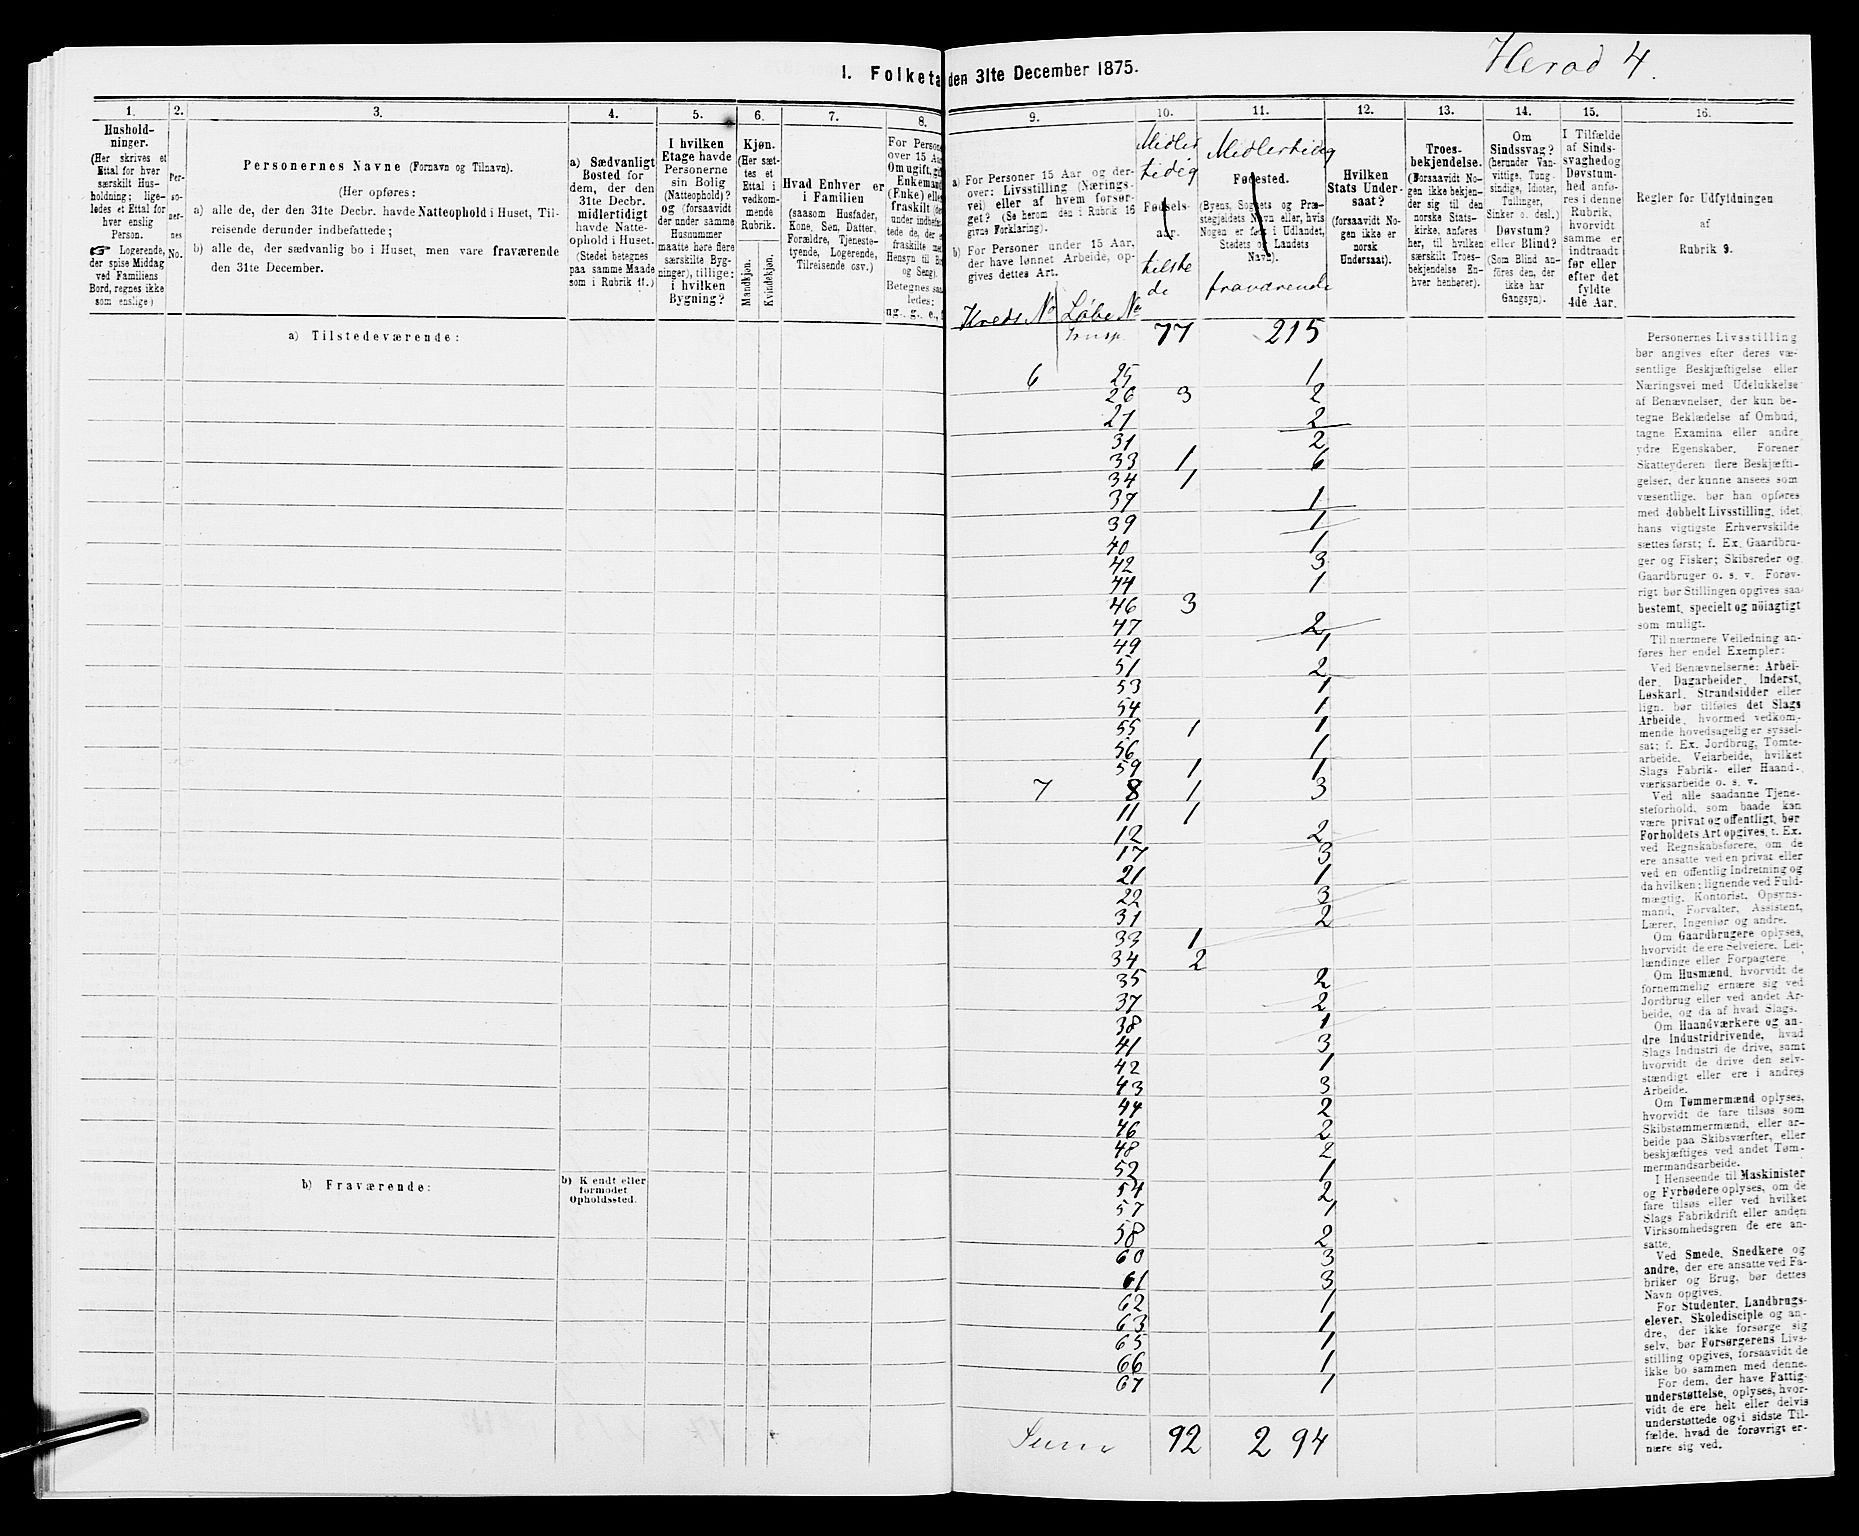 I. Folketa den 31te December 1875.
Herad 4.
1.
Hushold-
ninger.
(Her skrives et
Ettal for hver
særskilt Hus-
holdning; lige-
ledes et Ettal for
hver enslig
Person.
☞ Logerende,
der spise Middag
ved Familiens
Bord, regnes ikke
som enslige)
2.
Per-
so-
ner-
nes
No.
3.
Personernes Navne (Fornavn og Tilnavn).
(Her opføres:
a) alle de, der den 31te Decbr. havde Natteophold i Huset, Til-
reisende derunder indbefattede;
b) alle de, der sædvanlig bo i Huset, men vare fraværende
den 31te December.
4.
a) Sædvanligt
Bosted for
dem, der den
31te Decbr.
midlertidigt
havde Natte-
ophold i Huset.
(Stedet betegnes
paa samme Maade
som i Rubrik 11.)
5.
I hvilken
Etage havde
Personerne
sin Bolig
(Natteophold)?
og (forsaavidt
der under samme
Husnummer
maatte høre flere
særskilte Byg-
ninger), tillige:
i hvilken
Bygning?
6.
Kjøn.
(Her sæt-
tes et
Ettal i
vedkom-
mende
Rubrik.
Mandkjøn.
Kvindekjøn.
7.
Hvad Enhver er
i Familien
(saasom Husfader,
Kone, Søn, Datter,
Forældre, Tjeneste-
tyende, Logerende,
Tilreisende osv.)
8.
For Persone
over 15 Aar
Om ugift, gif
Enkemand
(Enke) elle
fraskilt
Betegnes saa
ledes:
ug., g., e., f
9.
a) For Personer 15 Aar og der-
over: Livsstilling (Nærings-
vei) eller af hvem forsør-
get? (Se herom den i Rubrik 16
givne Forklaring).
b) For Personer under 15 Aar,
der have lønnet Arbeide, op-
gives dettes Art.
Kreds No Løbe No
10.
Midler
tidig
Fødsels-
aar.
tilste
de
11.
Midlertidig
Fødested.
(Byens, Sognets og Præ-
stegjeldets Navn eller, hvis
Nogen er født i Udlandet,
Stedets og Landets
Navn).
fraværende
12.
Hvilken
Stats Under-
saat?
(forsaavidt No-
gen ikke er
norsk
Undersaat).
13.
Troes-
bekjendelse.
(Forsaavidt No-
gen ikke bekjen-
der sig til den
norske Stats-
kirke, anføres
her, til hvilken
særskilt Troes-
bekjendelse En-
hver henhører).
14.
Om
Sindssvag?
(herunder Van-
vittige, Tung-
sindige, Idioter,
Tullinger,
Sinker o. desl.)
Døvstum?
eller Blind?
(Som Blind an-
føres den, der
ikke har
Gangsyn).
15.
I Tilfælde
af Sinds-
svaghed og
Døvstum-
hed anfø-
res i denne
Rubrik,
hvorvidt
samme er
indtraadt
før eller
efter det
fyldte
4de Aar.
16.
Regler for Udfyldningen
af
Rubrik 9.
a) Tilstedeværende:
Transp. 77 215
6 25 1
26 3 2
27 2
31 2
33 1 6
34 1
37 1
39 1
40 1
42 3
44 1
46 3
47 2
49 1
51 2
53 1
54 1
55 1 1
56 1
59 1 1
7 8 1 3
11 1
12 2
17 3
21 1
22 3
31 2
33 1
34 2
35 2
37 2
38 1
41 3
42 1
43 3
44 2
46 2
48 2
52 1
54 2
57 1
58 2
60 3
61 3
62 1
63 1
65 1
66 1
67 1
Sum 92 294
b) Fraværende:
b) Kjendt eller
formodet
Opholdssted.
Personernes Livsstilling
bør angives efter deres væ-
sentlige Beskjæftigelse eller
Næringsvei med Udelukkelse
af Benævnelser, der kun be-
tegne Beklædelse af Ombud,
tagne Examina eller andre
ydre Egenskaber. Forener
Skatteyderen flere Beskjæfti-
gelser, der kunne ansees som
væsentlige, bør han opføres
med dobbelt Livsstilling, idet
hans vigtigste Erhvervskilde
sættes først; f. Ex. Gaardbru-
ger og Fisker; Skibsreder og
Gaardbruger o. s. v. Forøv-
rigt bør Stillingen opgives saa
bestemt, specielt og nöiagtigt
som muligt.
Til nærmere Veiledning an-
føres her endel Exempler:
Ved Benævnelserne: Arbei-
der, Dagarbeider, Inderst,
Løskarl, Strandsidder eller
lign. bør tilføies det Slags
Arbeide, hvormed vedkom-
mende hovedsagelig er syssel-
sat; f. Ex. Jordbrug, Tomte-
arbeide, Veiarbeide, hvilket
Slags Fabrik- eller Haand-
værksarbeide o. s. v.
Ved alle saadanne Tjene-
steforhold, som baade kan
være privat og offentligt, bør
Forholdets Art opgives, t. Ex.
ved Regnskabsførere, om de
ere ansatte ved en privat eller
ved en offentlig Indretning og
da hvilken; lignende ved Fuld-
mægtig, Kontorist, Opsyns-
mand, Forvalter, Assistent,
Lærer, Ingeniør og andre.
Om Gaardbrugere oplyses,
hvorvidt de ere Selveiere, Lei-
lændinge eller Forpagtere.
Om Husmænd, hvorvidt de
fornemmelig ernære sig ved
Jordbrug eller ved andet Ar-
beide, og da af hvad Slags.
Om Haandværkere og an-
dre Industridrivende, hvad
Slags Industri de drive, samt
hvorvidt de drive den selv-
stændigt eller ere i andres
Arbeide.
Om Tømmermænd oplyses,
hvorvidt de fare tilsøs som
Skibstømmermænd, eller ar-
beide paa Skibsværfter, eller
beskjæftiges ved andet Tøm-
mermandsarbeide.
I Henseende til Maskinister
og Fyrbødere oplyses, om de
fare tilsøs eller ved hvilket
Slags Fabrikdrift eller anden
Virksomhedsgren de ere an-
satte.
Ved Smede, Snedkere og
andre, der ere ansatte ved Fa-
briker og Brug, bør dettes
Navn opgives.
For Studenter, Landbrugs-
elever, Skoledisciple og an-
dre, der ikke forsørge sig
selv, bør Forsørgerens Livs-
stilling opgives, forsaavidt de
ikke bo sammen med denne.
For dem, der have Fattig-
understøttelse, oplyses, hvor-
vidt de ere helt eller delvis
understøttede og i sidste Til-
fælde, hvad de forøvrigt er-
nære sig ved.